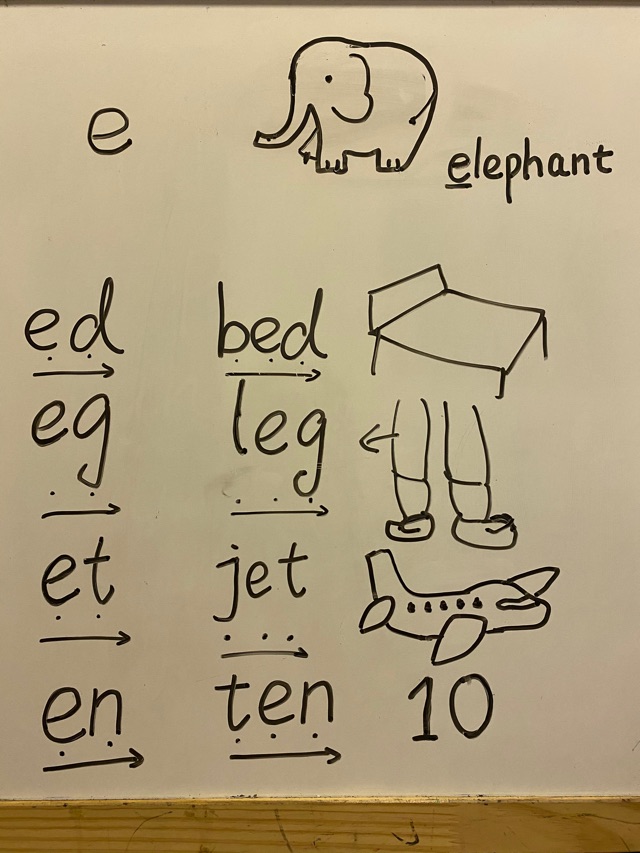 e
elephant
ed bed
eg leg
et jet
en ten 10